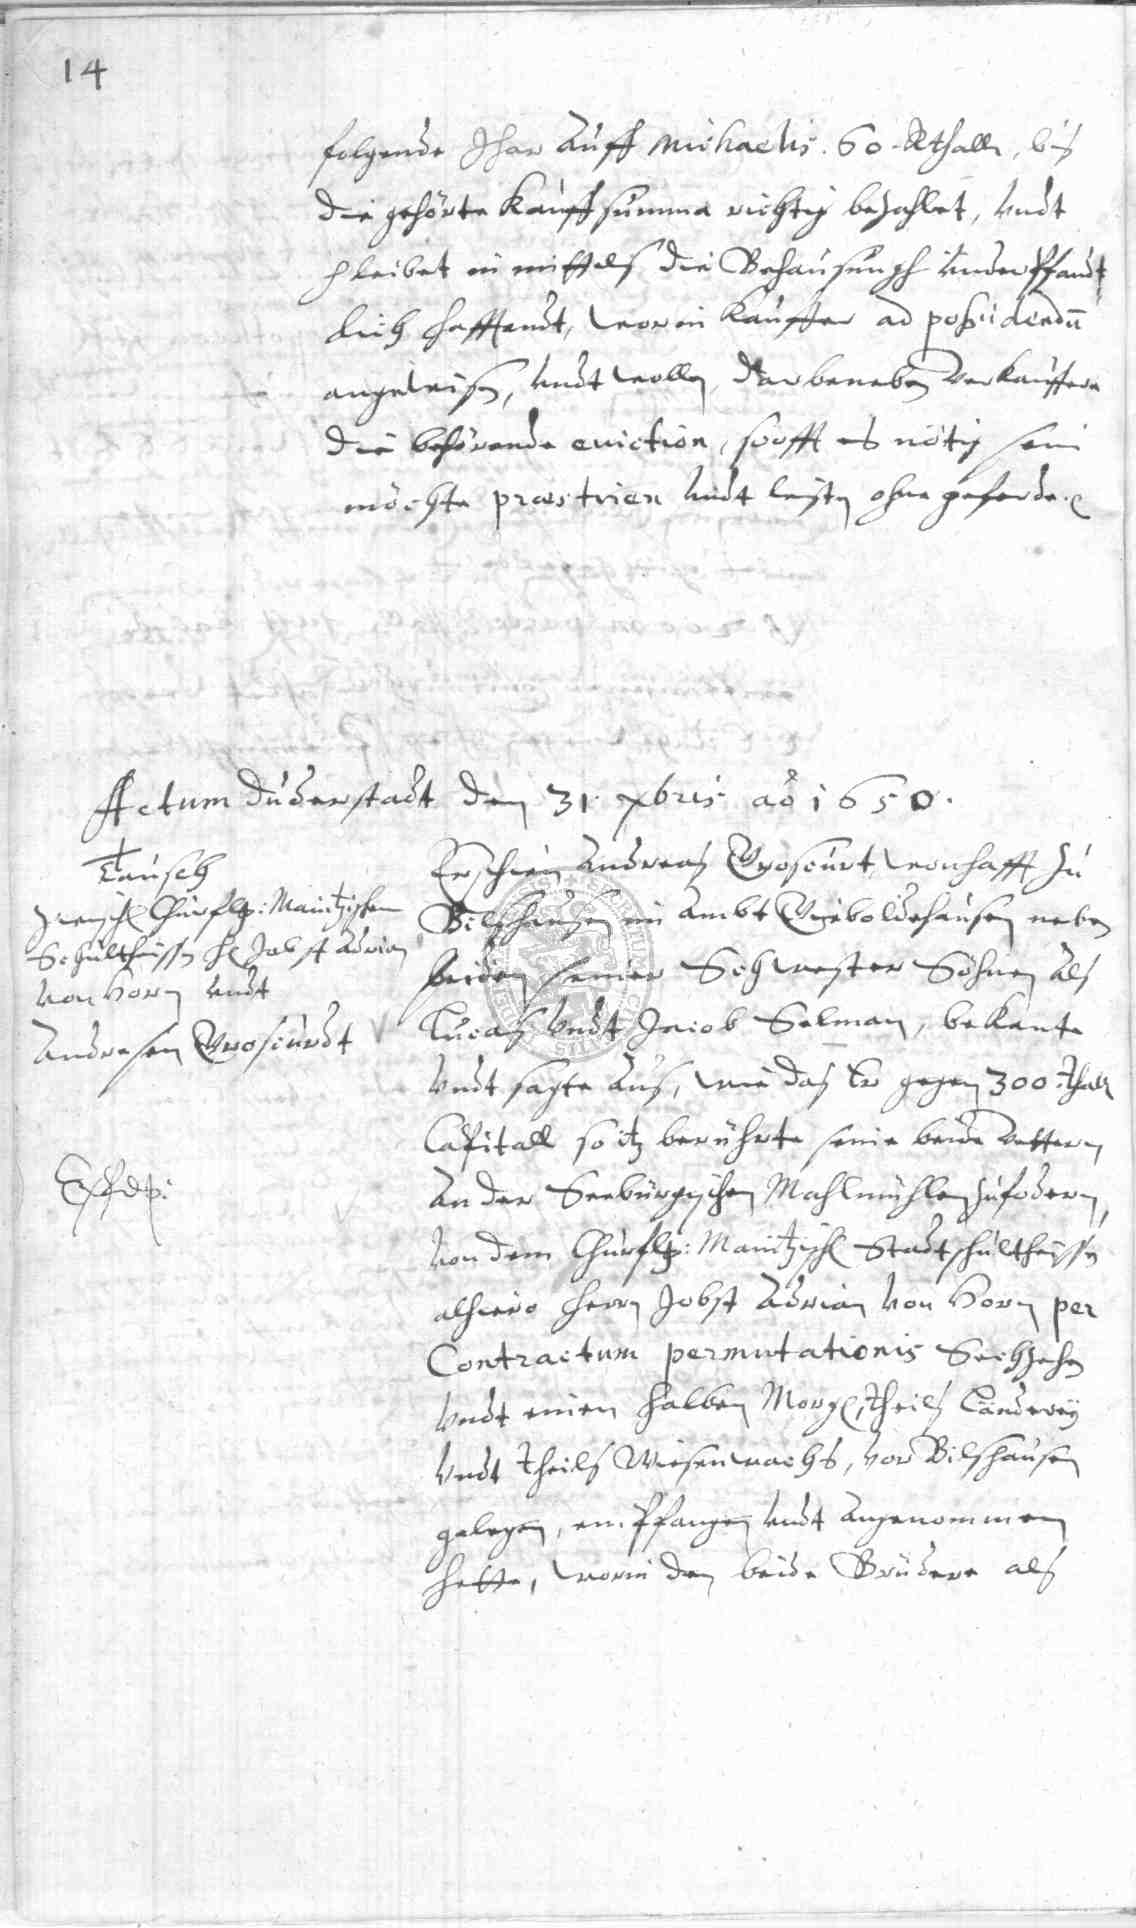 14
folgende Jhar auff Michaelis. 60. Rthall, bis
die gehörte Kauffsumma richtig bezahlet, undt
pleibet inmittels die Behausungh underpfandt
lich hafftendt, worin Kauffer ad possidendū
angewisen, undt wollen darbeneben verkauffere
die behörende eviction, sofft es nötig sein
möchte præstiren undt leisten ohne geferde.
Actum Duderstadt den 31. xbris aō 1650.
Tausch
zwischen Churfl: Maintzischem
Schultheissen H Jobst Adrian
von Horn undt
Andresen
Erschien Andreas wonhafft zu
Bilshausen im Ambt Gieboldehausen neben
beiden seiner Schwester Söhnen als
Lucas undt Jacob Selman, bekante
undt sagte aus, wie das Er gegen 300 thall
Capitall so itz berührte seine beide vettern
an der Seeburgischen Mahlmühlen zufodern,
von dem Churfl: Maintzisch Stadtschultheissen
alhiero Herrn Jobst Adrian von Horn per
Contractum permutationis Sechzehn
undt einen halben Morg, theils Länderey
undt theils Wiesenwachs, vor Bilshausen
gelegen, empfangen undt angenommen
hette, worin den beide Brüdere als